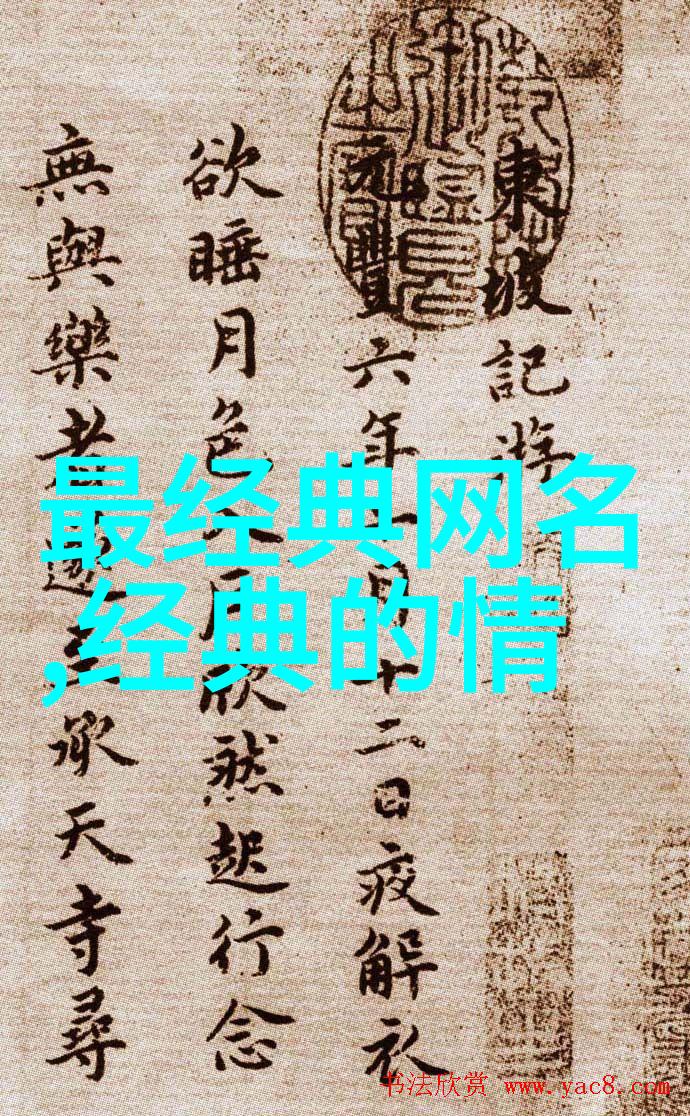 東坡記游
元豐六年十月十二日夜解衣
欲睡月色入戶欣然起行念
無與樂者遂至承天寺尋
最经典网名
,经典的情
书法欣赏 www.yac8.com